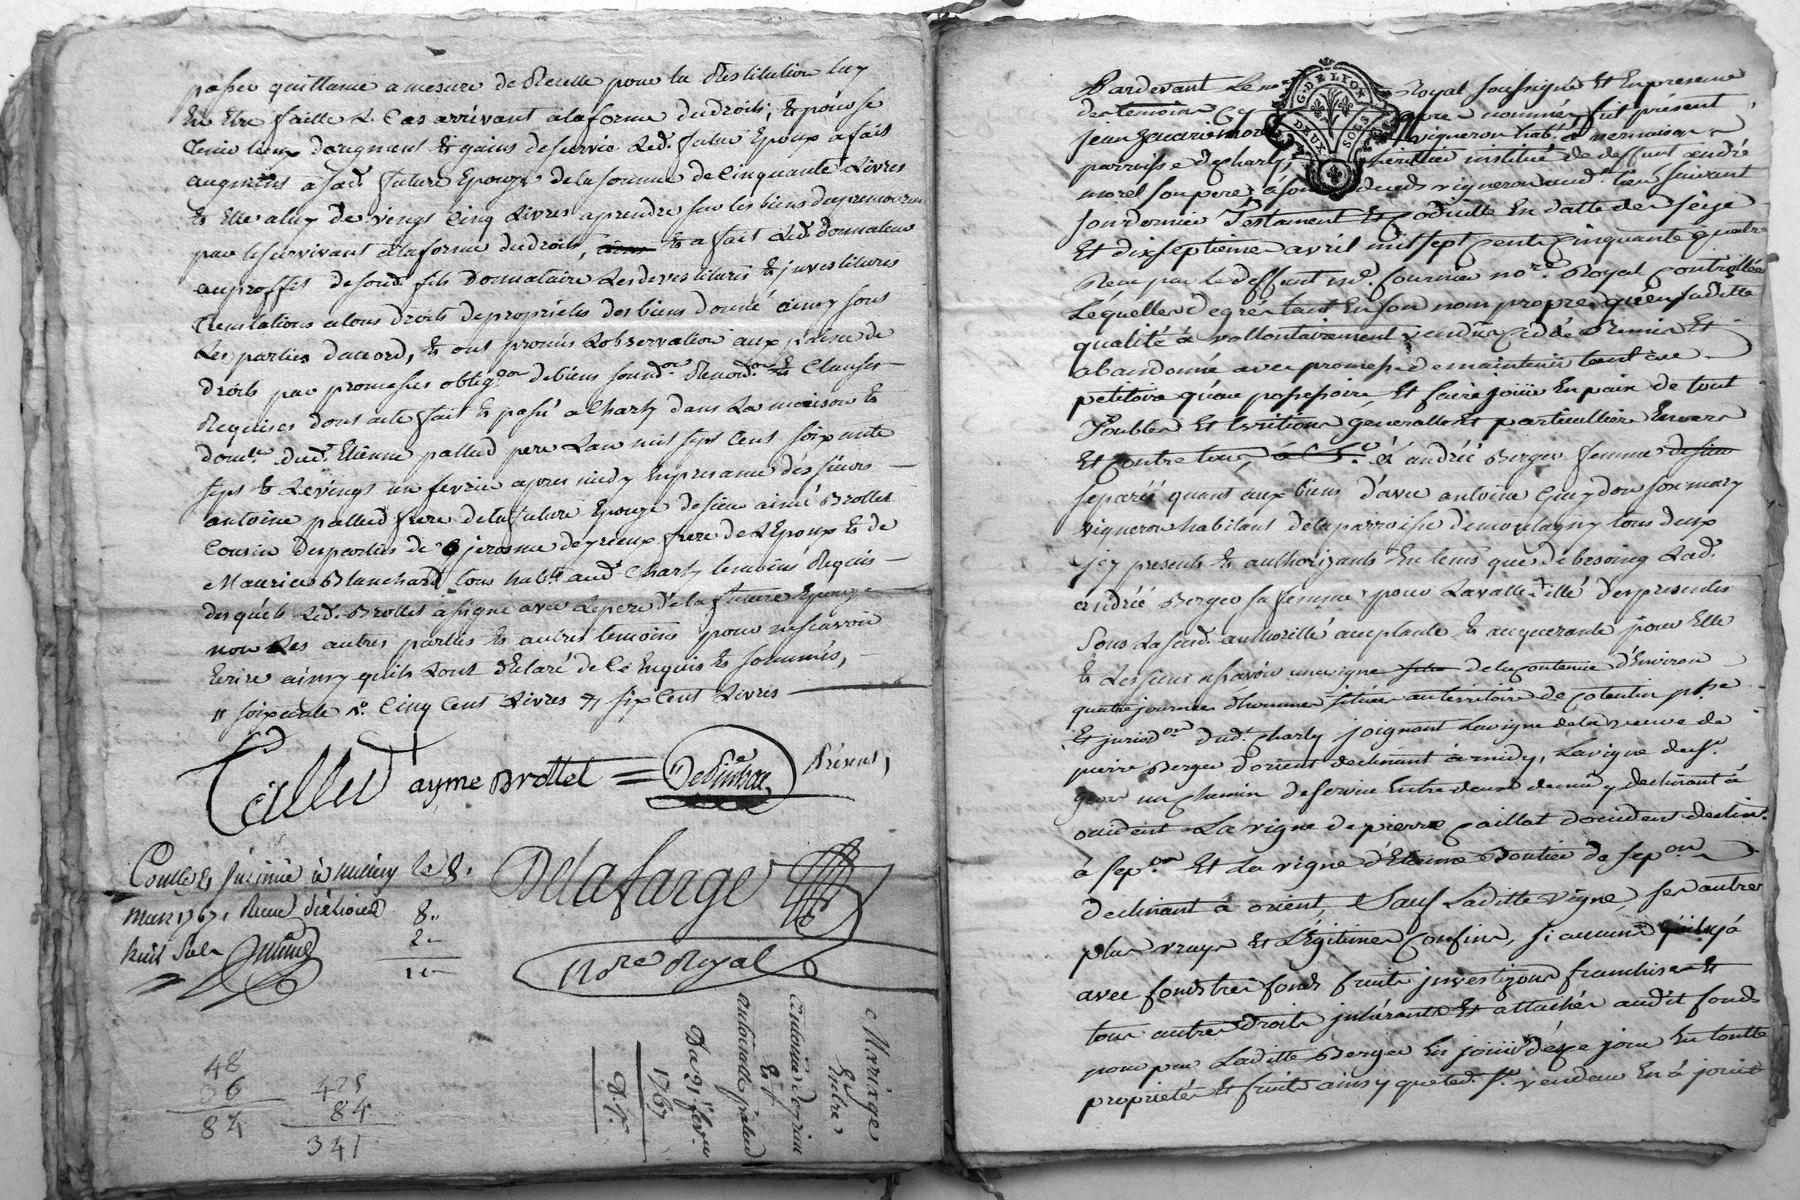 passer quittance a mesure de Recette pour la Restitution luy
En Etre faitte Le Cas arrivant a la forme du droit; Et pour se
tenir lieux daugment Et gains de survie Led. futur Epoux a fait
augment a sad. future Epouze de la somme de Cinquante Livres
Et Elle a luy de vingt Cinq Livres a prendre sur les biens du premourant
par le survivant a la forme du droit, Et a fait Led. donnateur
au proffit de sond. fils donnataire Les devestitures Et investitures
translations a tous droits de propriétés des biens donné ainsy sont
Les parties daccord, Et ont promis Lobservation aux peine de
droits par promesses oblig.on de biens soum.on Renon.on Et Clauses
Requises dont acte fait Et passé a Charly dans La maison Et
dom.le dud. Etienne pallud pere Lan mil sept Cent soixante
sept Et Le vingt un fevrie apres midy En presance des sieurs
antoine pallud frere de la future Epouze de sieur aimé Brottet
Cousin des parties de jerosme deyrieux frere de LEpoux Et de
Maurice Blanchard tous hab.ts aud. Charly temoins Requis
desquels Led. Brottet a signé avec Le pere de la future Epouze
non Les autres parties Et autres temoins pour ne scavoir
Ecrire ainsy quils Lont déclaré de Ce Enquis Et sommés,
soixante Cinq Cent Livres six Cent Livres
Pallud ayme Brottet =
Delafarge
no.re Royal
Mars 1767. Recu dix livres
huit sols
8..
2..
10
48
36
84
425
84
341
Mariage
Entre
Et
Du 21 fevrier
1767
Pardevant Le no Royal soussigné Et En presence
des temoins cy apres nommés fut présent
jean vigneron hab.t a
parroisse de Charly heritier institué de deffunt andré
morel son pere, vigneron aud. lieu suivant
son dernier Testament Et Codicille En datte des seize
Et dixseptieme avril mil sept cent Cinquante quatre
Recu par Le deffunt m.e fournier no.re Royal Controllés
Lequel de gré tant En son nom propre, qu'en saditte
qualité a vollontairement vendu Cedé Remis Et
abandonné avec promesse de maintenir tant au
petitoire qu'au possessoire Et faire jouir En paix de tout
Troubles Et Evictions generalles Et particulliere Envers
Et Contre tous, á andrée Berger femme
separée quant aux biens d'avec antoine Guydon son mary
vigneron habitant de la parroisse de montagny tous deux
jcy presents Et authorizants En tems que de besoing Lad.
andrée Berger sa femme, pour La validité des presentes
Sous La susd. authorité acceptante Et acquerante pour Elle
Et Les siens a scavoir une vigne de la Contenue d'Environ
quatre journées d'hommes située au territoire de Cotentin p.sse
Et jurisd.on dud. Charly joignant La vigne de la veuve de
pierre Berger d'orient declinant a midy, La vigne du s.r
un chemin de service Entre deux de midy declinant à
occident La vigne de pierre Caillat d'occident declin.t
à sep.on Et La vigne d'Etienne Boutier de sep.on
declinant à orient, Sauf Laditte vigne, ses autres
plus vrays Et Légitimes Confins, si aucuns
avec fonds tres fonds fruits investizons franchises Et
tous autres droits inhérants Et attachés audit fonds
pour par Laditte Berger En jouir dés ce jour En toutte
propriétés Et fruits ainsy que led. s.r vendeur En à jouit
G. DE LYON
DEUX SOLS